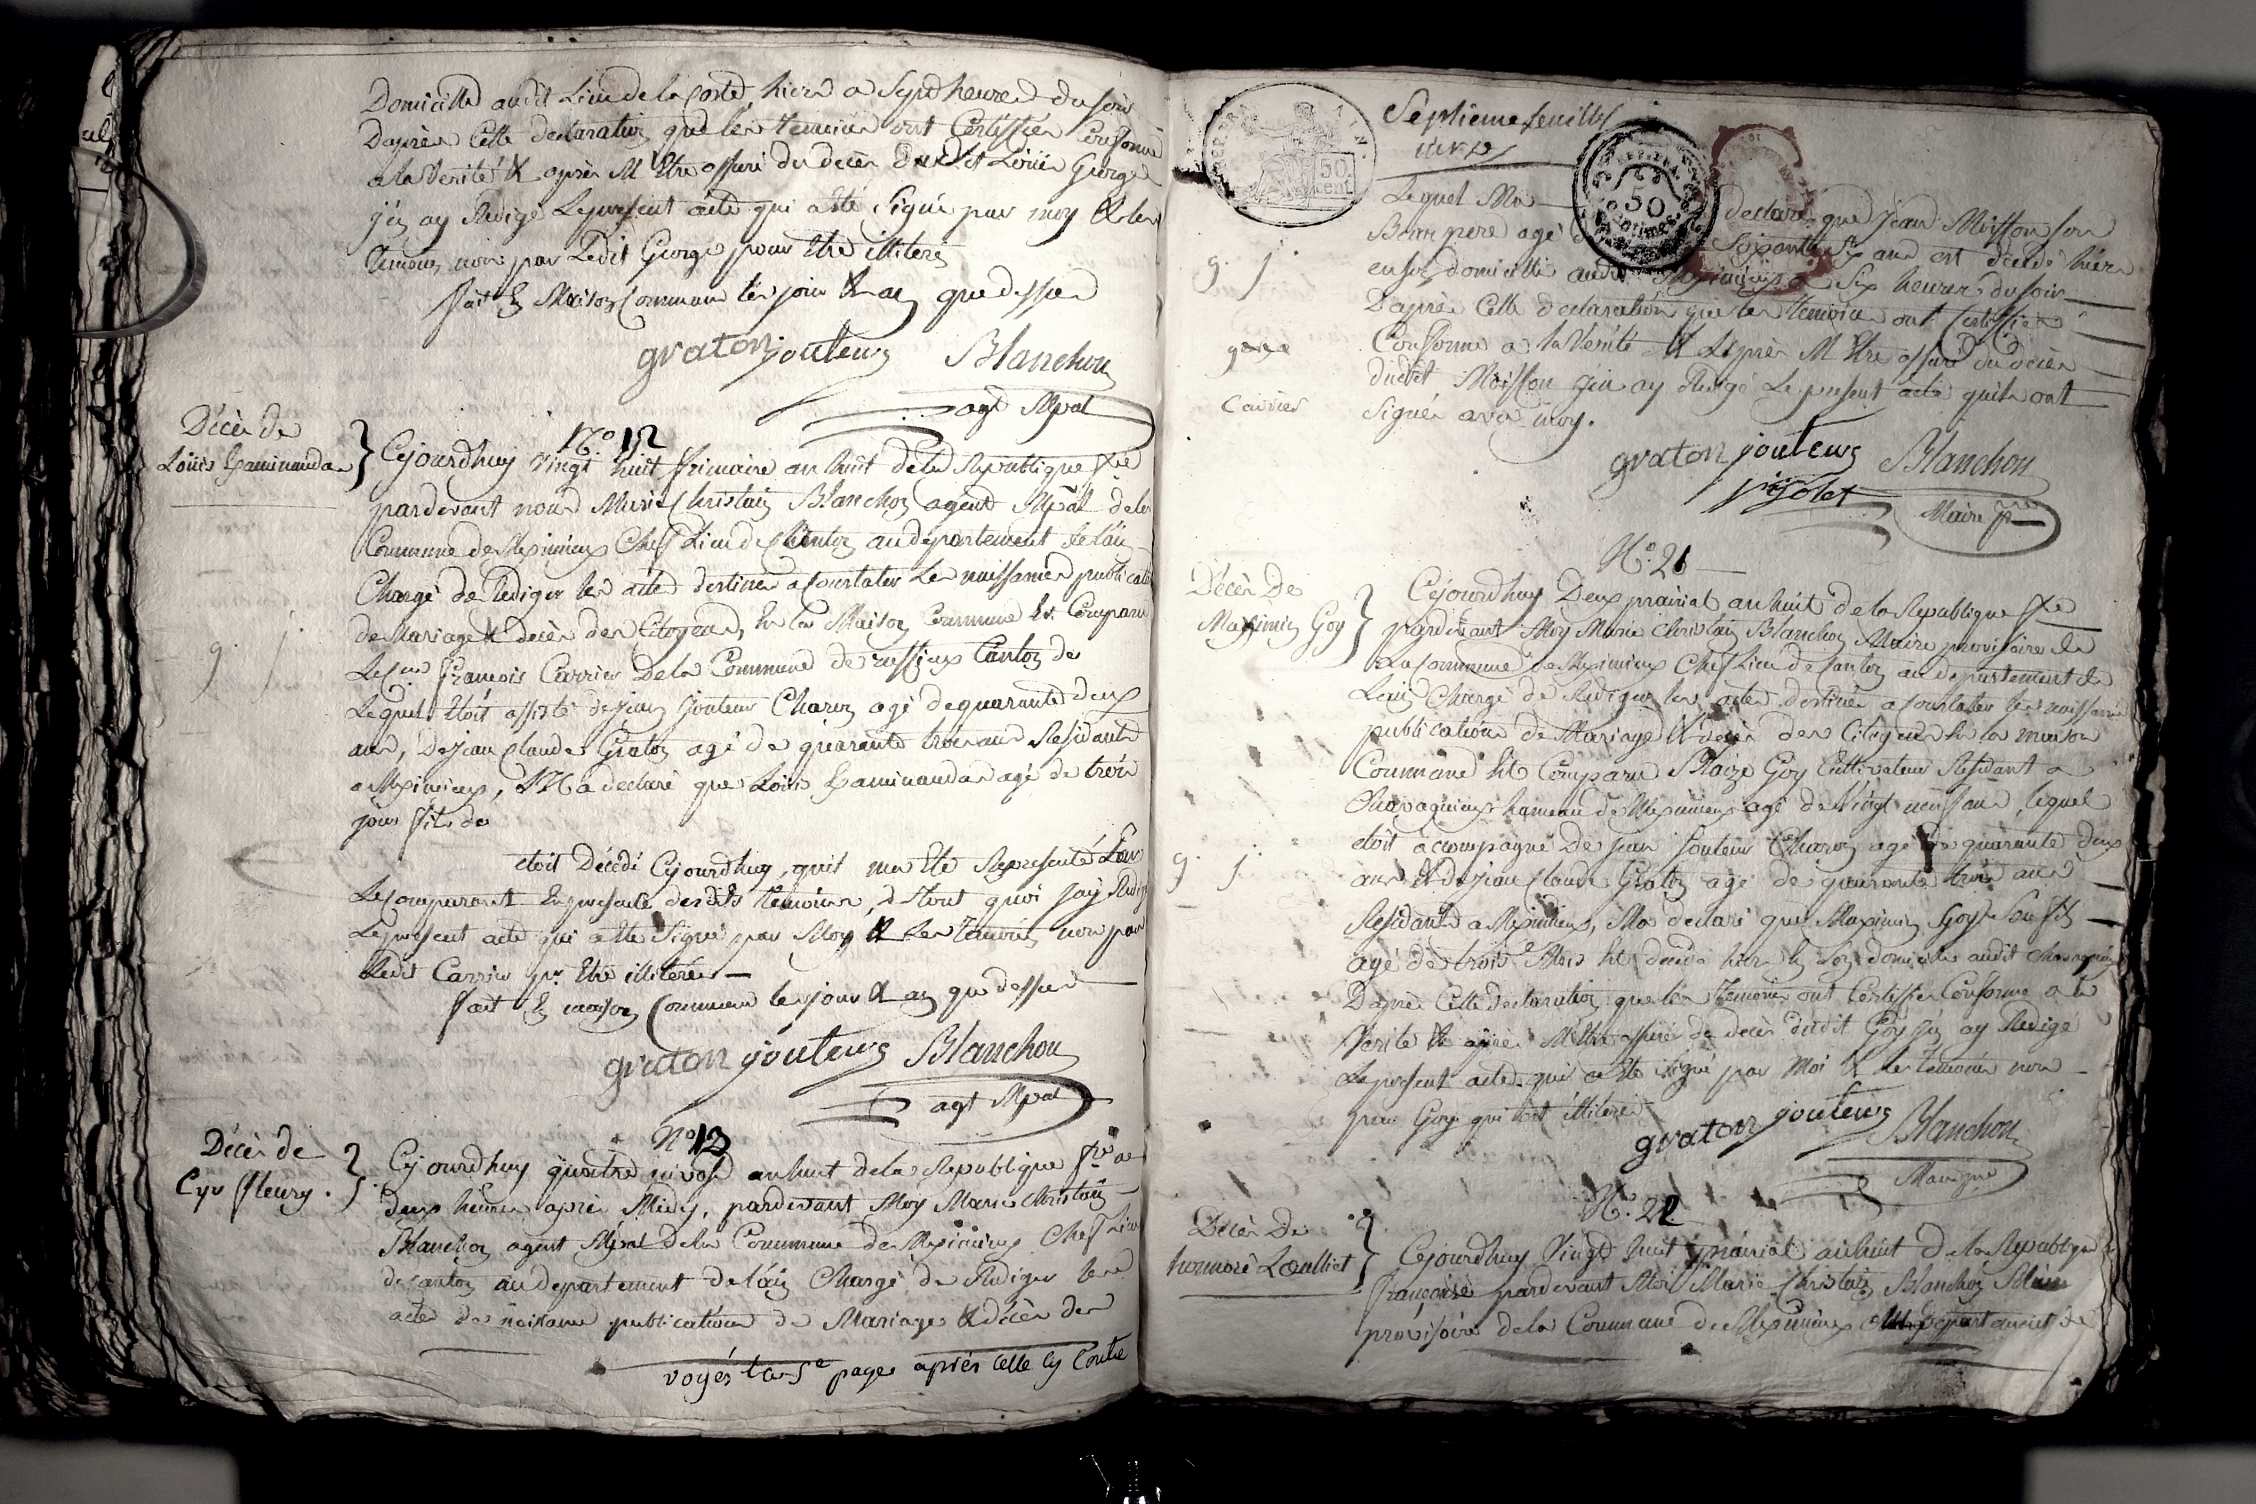 Domicillé audit Lieu de la Coste, hier a Sept heures du soir
Daprès Cette declaration que les temoins ont Certiffiés Conforme
a la Verité & après M'Etre assuré du decès dudit Loüis George
j'en ay Redigé Le present acte qui a Eté Signé par moy & les
temoins non par Ledit George pour Etre illiteré
fait En Maison Commune les jour & an que dessus
graton jouteurs Blanchon
agt Mpal
N.o 12
Décès de
Loüis
Cejourdhuy vingt huit frimaire an huit de la Republique fse
pardevant nous Marie Christain Blanchon agent Mpal de la
Commune de Meximieux Chef Lieu de Canton au departement de l'ain
Chargé de Rediger les actes destinés a Constater Les naissances publications
de Mariage & decès des Citoyens, En la Maison Commune Est Comparu
Le Cen francois Carrier De la Commune de Canton de
Lequel Etoit assisté de jean jouteurs Charon agé de quarante deux
ans, De jean Claude Graton agé de quarante trois ans Residants
a Meximieux, M'a declaré que Loüis agé de trois
jours fils de
etoit Décédé Cejourdhuy, quil ma Eté Representé Par
Le Comparant En presence desdits temoins, d Tout quoi jay Redigé
Le present acte qui a Eté Signé par Moy & Les Temoins non par
Ledit Carrier pr. Etre illiteré
fait En maison Commune les jour & an que dessus
graton jouteurs Blanchon
agt Mpal
No 13
Décès de
Cyr fleury.
Cejourdhuy quatre nivose an huit de la Republique fse a
deux heures après Midy, pardevant Moy Marie Christain
Blanchon agent Mpal De la Commune de Meximieux Chef Lieu
de Canton au departement de l'ain Chargé de Rediger les
actes de naissance publications de Mariages & décès des
voyés la 5e page après celle cy Contre
Septieme feuille
REP. FRA.
50
cent.
50
centimes
Lequel Ma declaré que Jean Moisson son
Beau pere agé de Soixante ans est décédé hier
en son domicille audit Meximieux a Six heures du soir
Daprès Cette declaration que les temoins ont Certiffiés
Conforme a la Vérité & après M'Etre assuré du decès
dudit Moisson j'en ay Redigé Le present acte quils ont
Signés avec moy.
graton jouteurs Blanchon
Maire pre
N.o 21
Décès De
Maximin Goy
Cejourdhuy Deux prairial an huit de la Republique fse
pardevant Moy Marie Christain Blanchon Maire provisoire de
La Commune de Meximieux Chef Lieu de Canton au departement de
Lain Chargé de Rediger les actes destinés a Constater les naissances
publications de Mariage & decès des Citoyens En la maison
Commune Est Comparu Blaize Goy Cultivateur Residant a
Chavagnieux hameau de Meximieux agé de Vingt neuf ans, lequel
etoit accompagné De jean jouteurs Charon agé de quarante deux
ans & De jean Claude Graton agé de quarante trois ans
Residants a Meximieux, Ma declaré que Maximin Goy Son fils
agé de trois Mois Est decedé hier En Son domicile audit Chavagnieux
Daprès Cette declaration que les Temoins ont Certiffiés Conforme a la
Verité & après M'Etre assuré du decès dudit Goy j'en ay Redigé
Le present acte qui a Eté signé par Moi & les temoins non
par Goy qui est illiteré
graton jouteurs Blanchon
N.o 22
Décès De
honnoré
Cejourdhuy Vingt huit prairial an huit De la Republique
francaise pardevant Moi Marie Christain Blanchon Maire
provisoire de la Commune de Meximieux Departement de